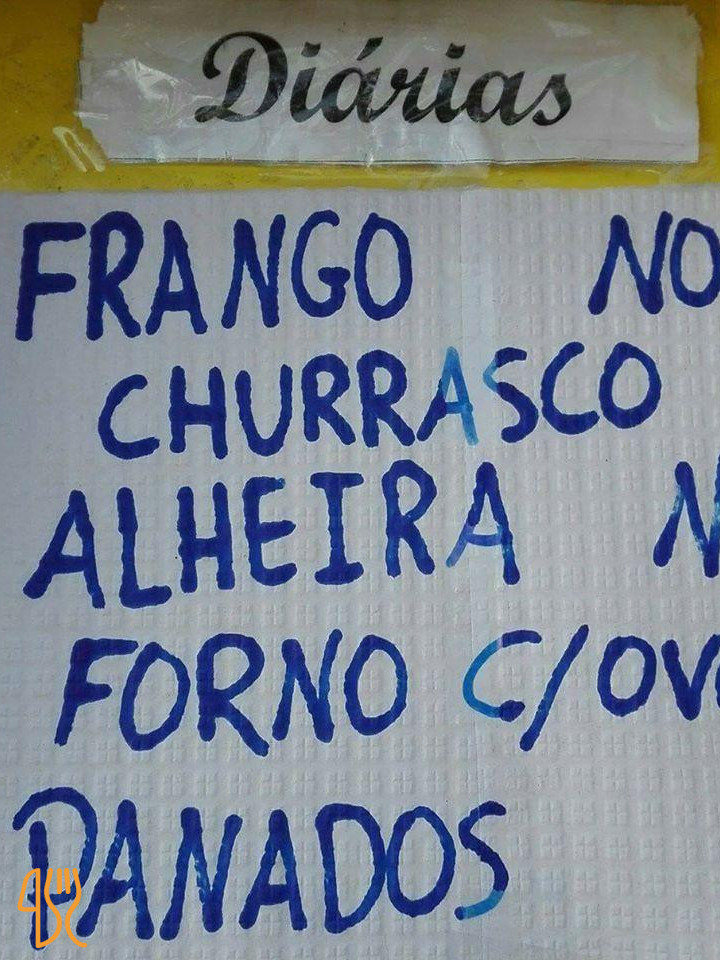 Diárias
FRANGO NO
CHURRASCO
ALHEIRA N
FORNO C/OV
PANADOS